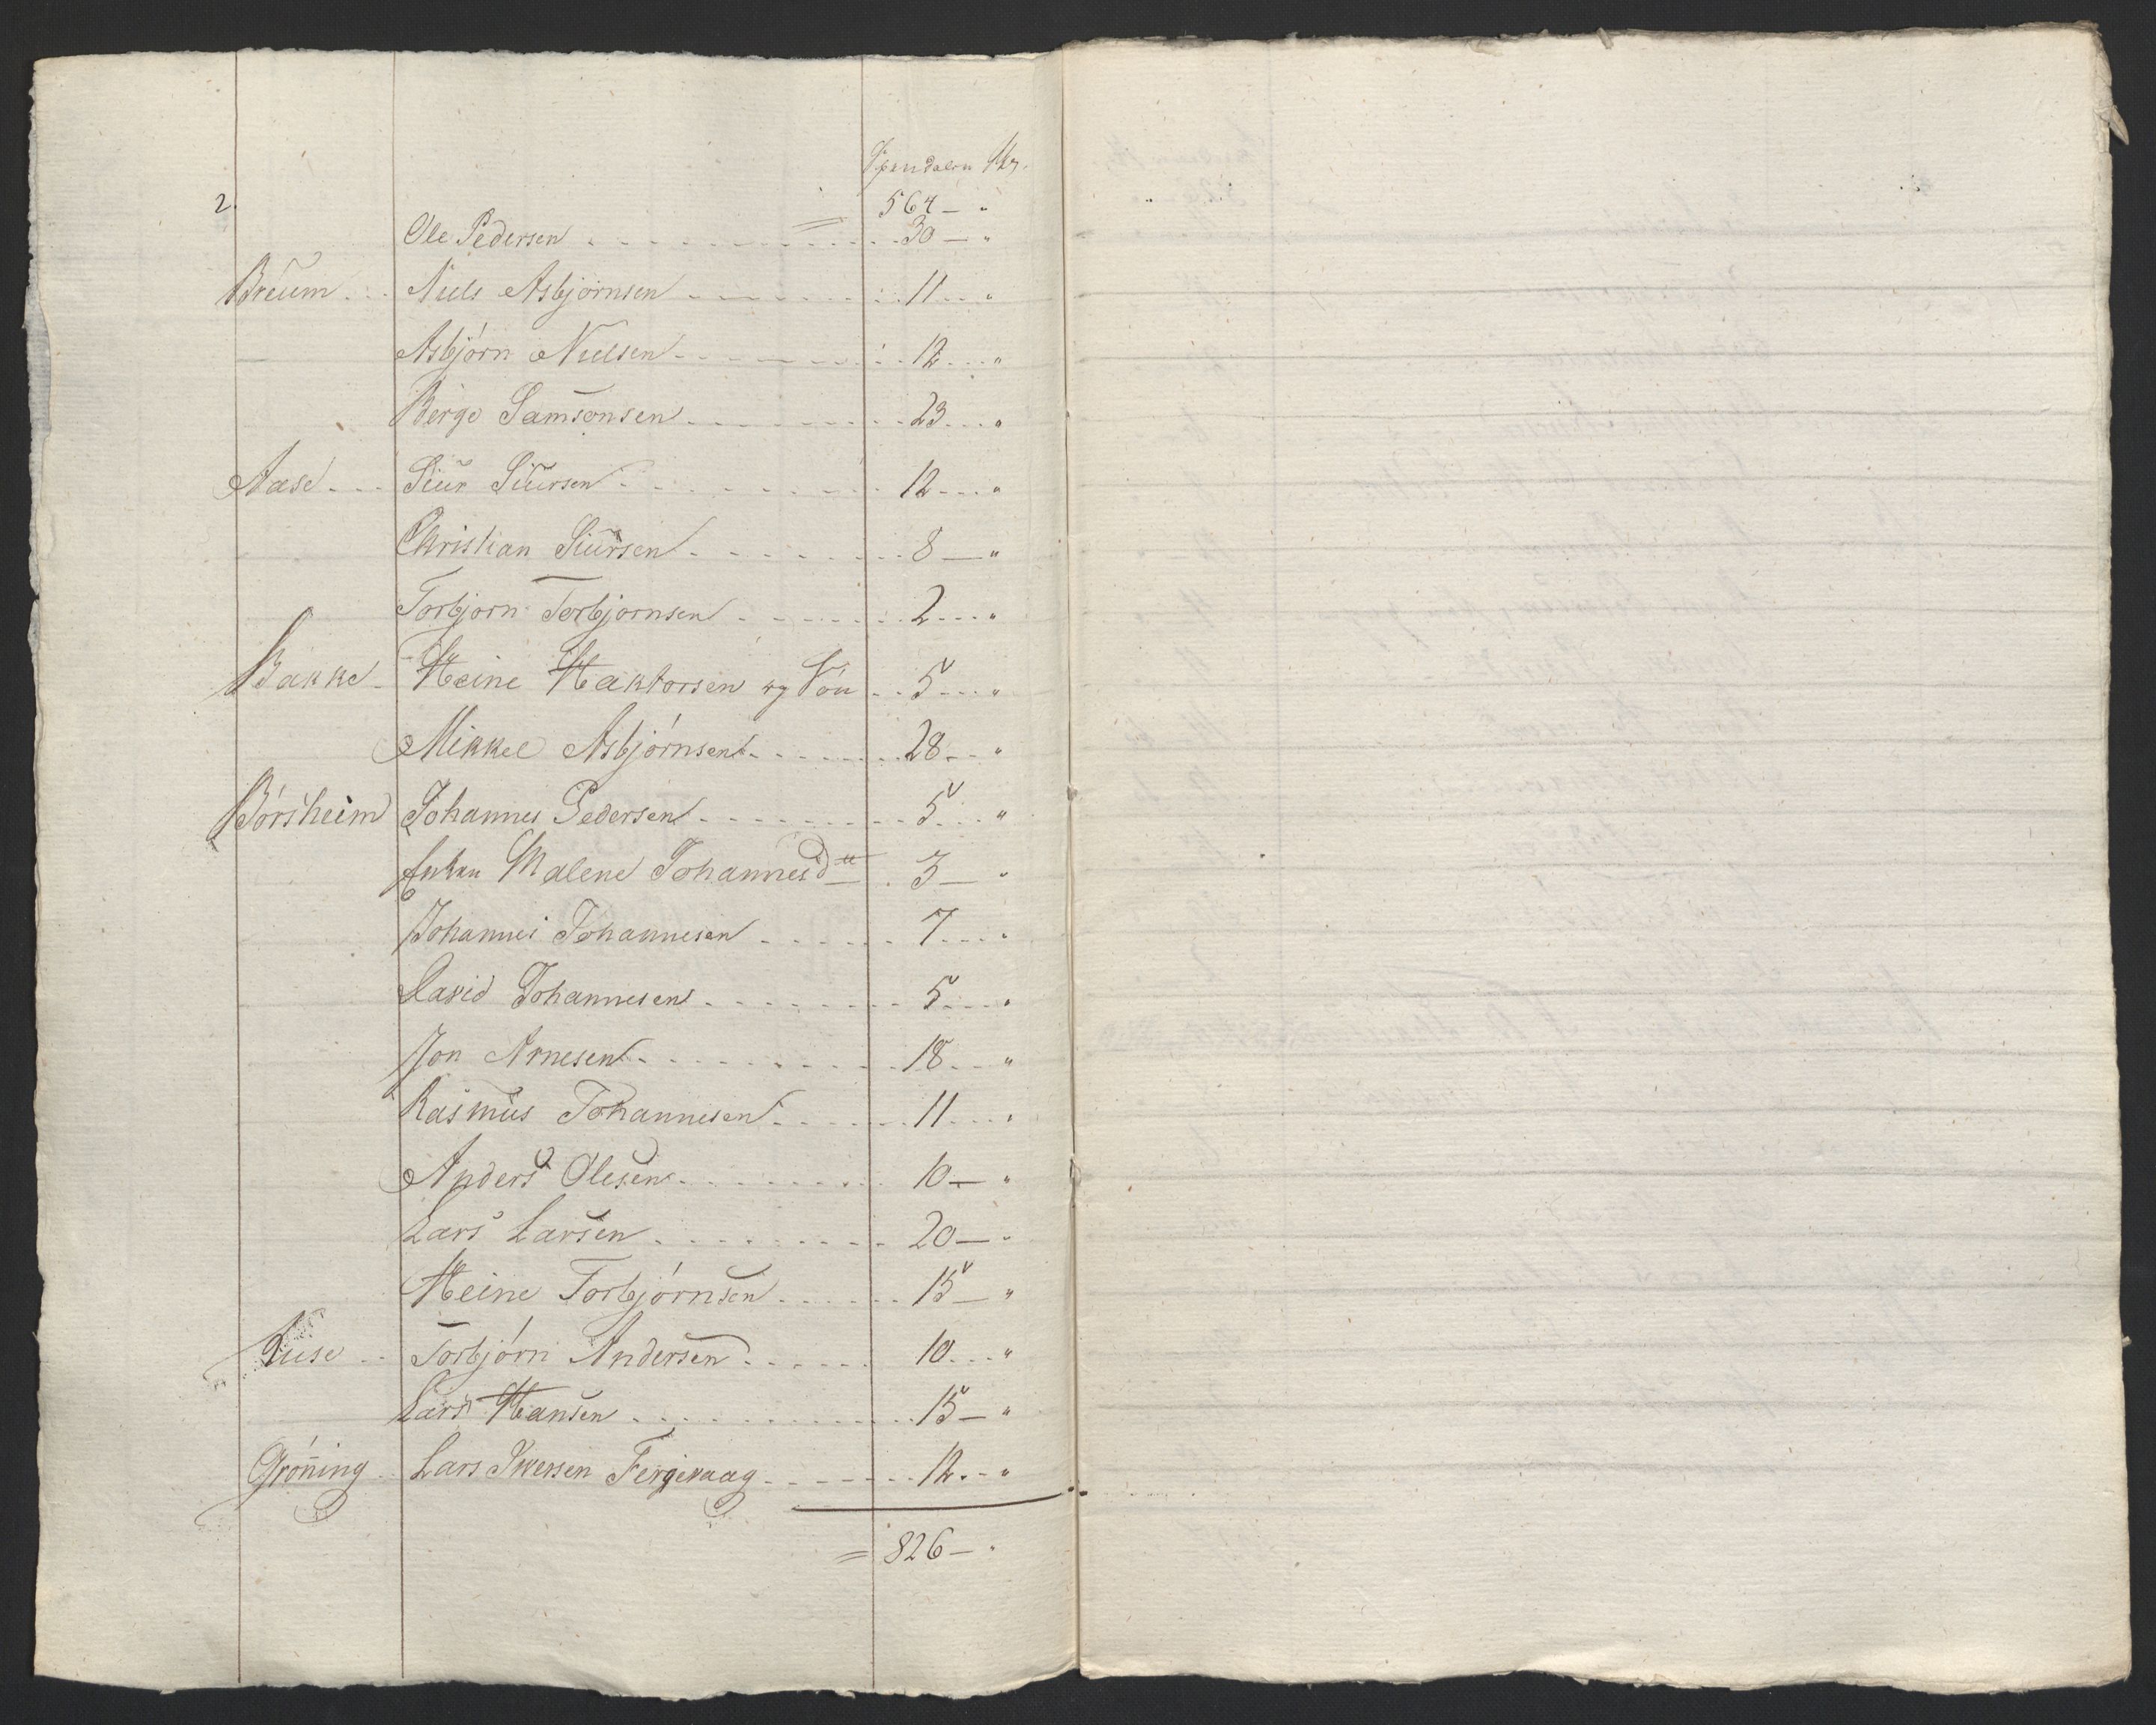 Specidaler ſk.
2.
= 564 — "
Ole Pedersen . . . . 30 — "
Breum . . Niels Asbjörnsen . . . . 11 . . "
Asbjörn Nielsen . . . . 12 . . "
Berge Samsonsen . . . . 23 . . "
Aase . . Siur Siursen . . . . 12 . . "
Christian Siursen . . . . 8 — "
Torbjorn Torbjornsen . . . . 2 . . "
Bakke . Heine Haktorsen og Sön . . 5 . . "
Mikkel Asbjörnsen . . . . 28 . . "
Börsheim Johannes Pedersen . . . . 5 . . "
Enken Malene Johannesd tt . 3 — "
Johannes Johannesen . . . . 7 . . "
David Johannesen . . . . 5 . . "
Jon Arnesen . . . . 18 . . "
Rasmus Johannesen . . . . 11 . . "
Anders Olesen . . . . 10 — "
Lars Larsen . . . . 20 — "
Heine Torbjörnsen . . . . 15 — "
Huse . . Torbjörn Andersen . . . . 10 . . "
Lars Hansen . . . . 15 — "
Gröning . . Lars Iversen Fergevaag . . . . 12 . . "
= 826 — "